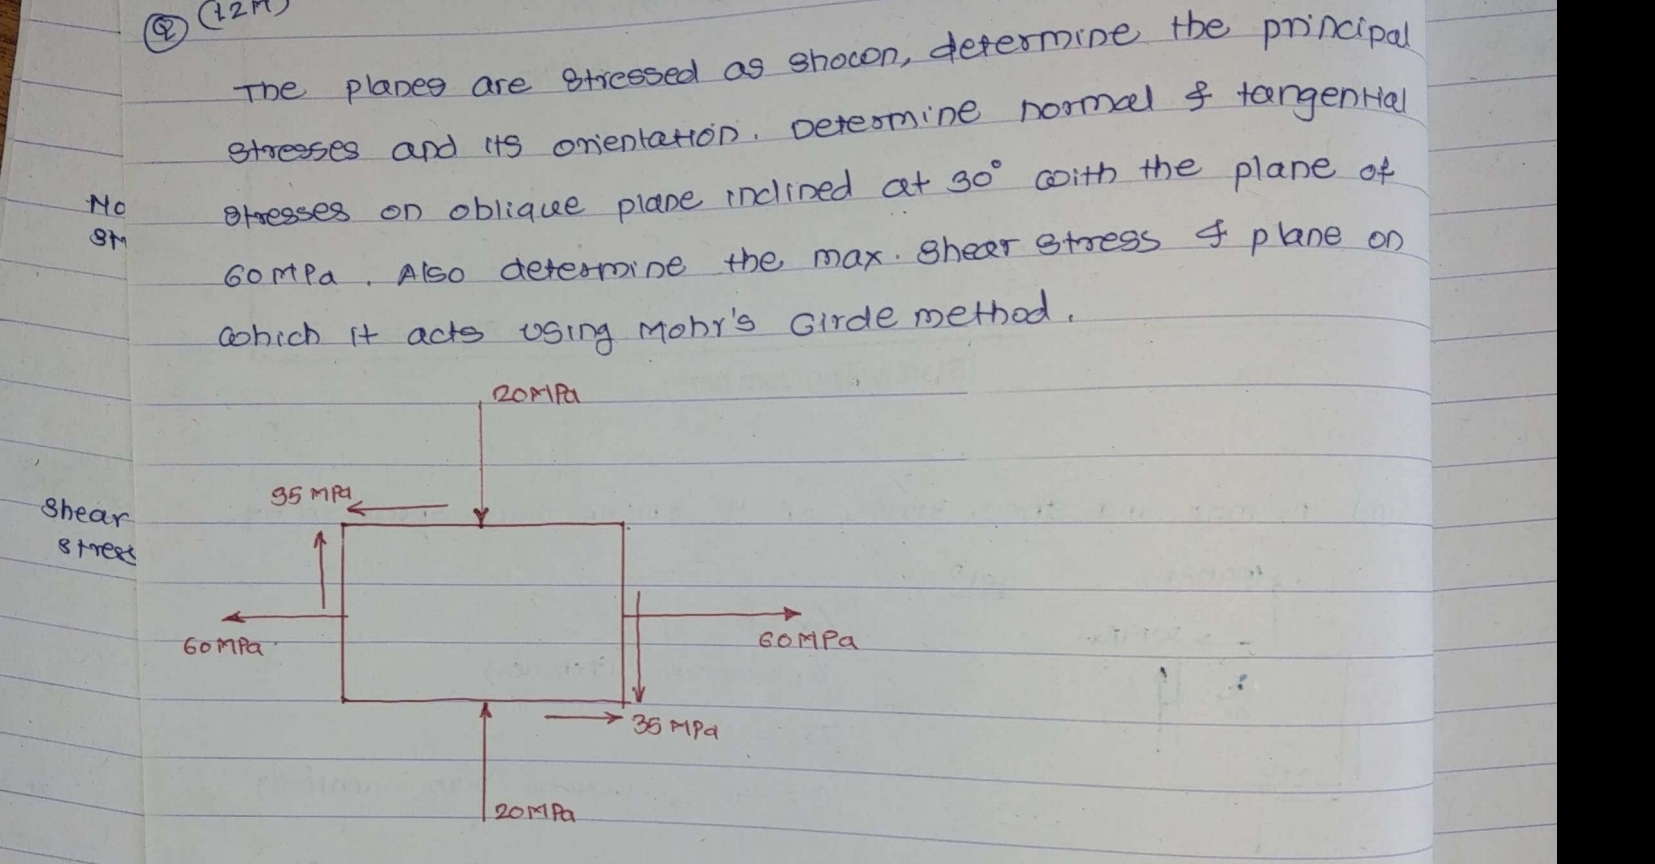 Q (12M)
The planes are stressed as shown, determine the principal
stresses and its orientation. Determine normal & tangential
stresses on oblique plane inclined at 30° with the plane of
60 MPa. Also determine the max. shear stress & plane on
which it acts using Mohr's Circle method.
No
St
20MPa
35 MPa
Shear
stress
60MPa
60MPa
35 MPa
20MPa